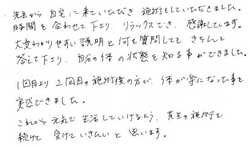 先生から自宅に来ていただき施術をしていただきました。
時間を合わせて下さりリラックスでき、感謝しています。
大変わかりやすい説明と何を質問してもきちんと
答えて下さり、自分の体の状態を知る事ができました。
1回目より2回目の施術後の方が、体が楽になった事を
実感できました。
これから元気で生活していけるよう、先生の施術を
続けて受けていきたいと思います。